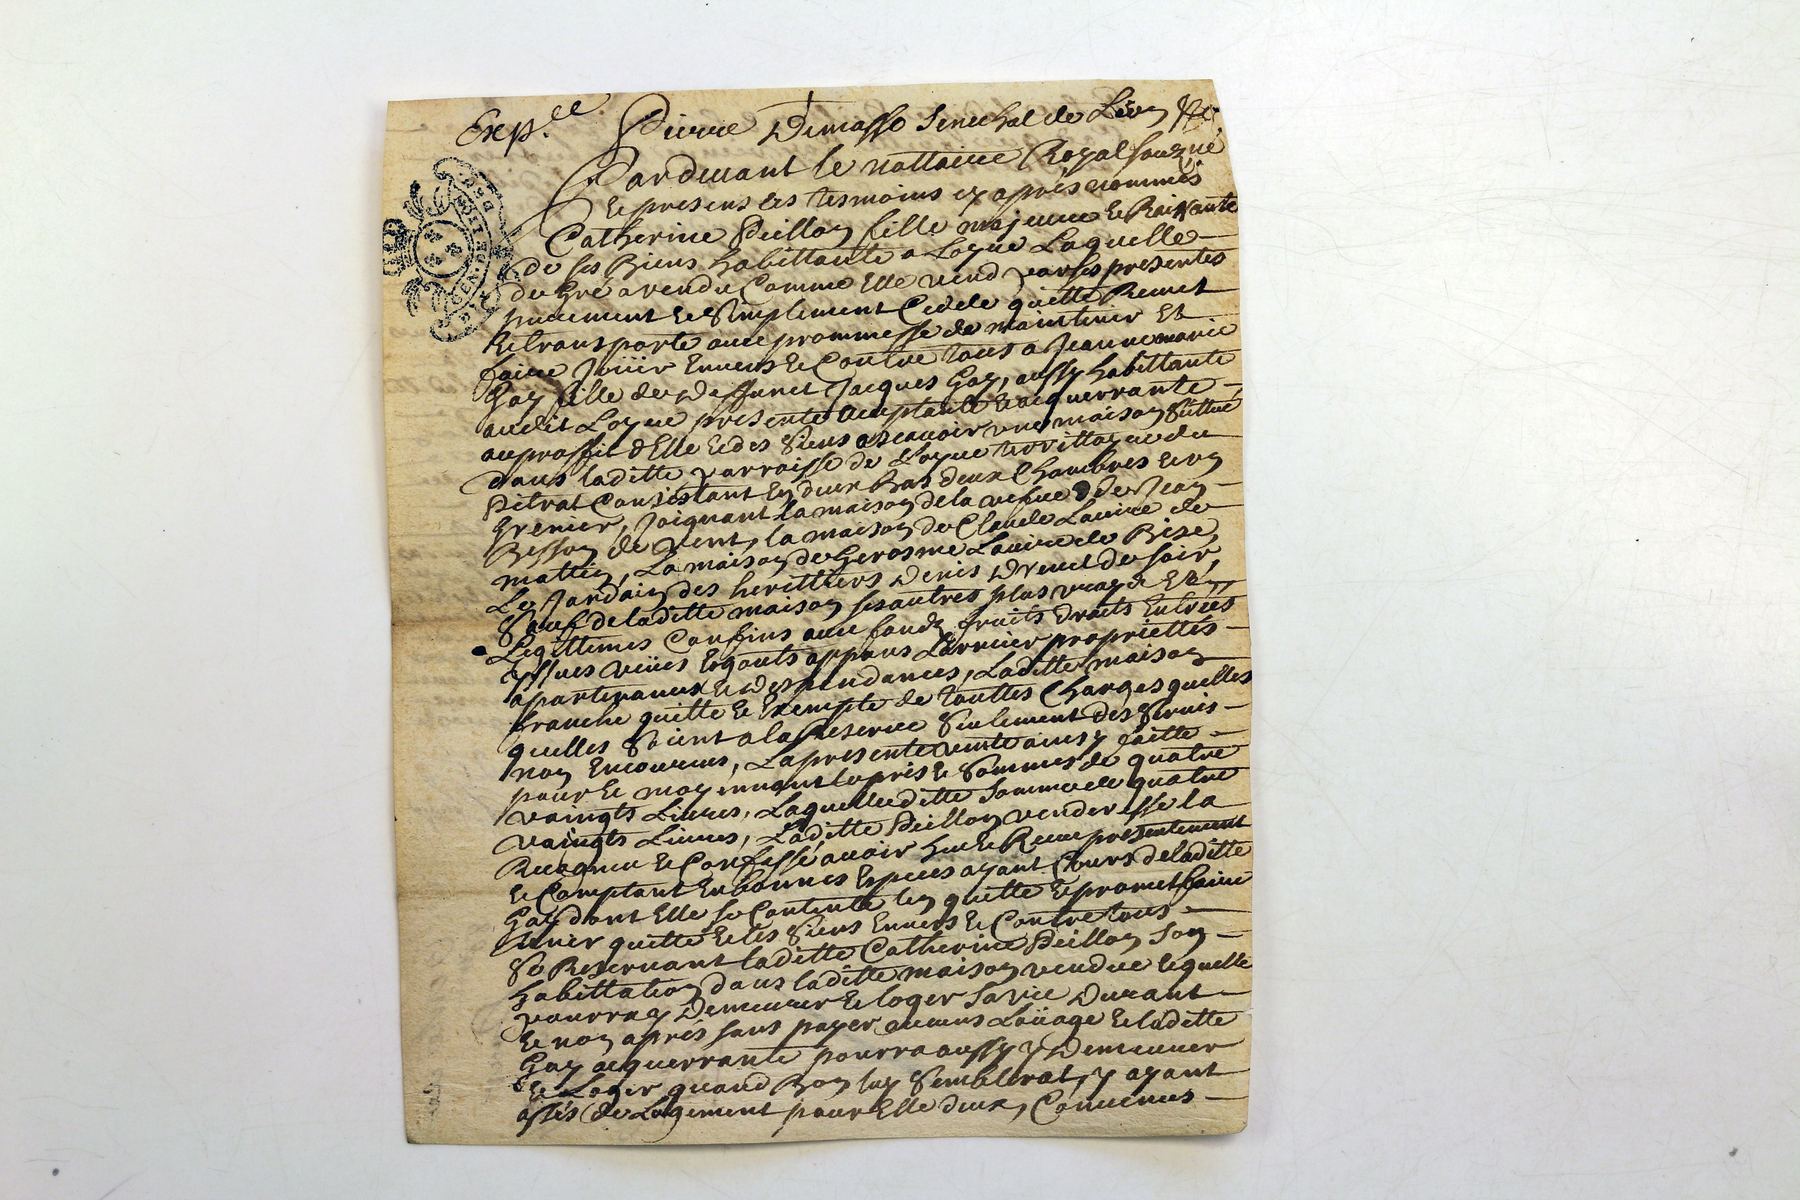 Exp.ee Pierre Demasso Senechal de Lion &c.
Pardevant le nottaire Royal souzné
Et presens les tesmoins cy aprés nommés
Catherine Peillon fille majeure Et Raixante
de ses Biens habittante a Loyre Laquelle
de Gré a vendu Comme Elle vend par ses presentes
purement Et Simplement Cedde quitte Remet
Et transporte avec prommesse de maintenir Et
faire Joüir Envers Et Contre tous a Jeanne marie
Gay fille de Deffunct Jacques Gay, aussy habittante
audit Loyre presente acceptante Et acquerrante
au proffit d'Elle Et des Siens ascavoir une maison Sittué
dans laditte parroisse de Loyre territtoyre du
Pétrat Consistant En deux Bas deux Chambres Et un
Grenier, Joignant la maison de la vefve de Jean
Besson de vent, la maison de Claude Lavire de
mattin, La maison de Gerosme Lavire de Bise,
Le Jardain des herittiers Denis Drevet de soir,
Sauf de laditte maison ses autres plus vrays Et
Legittimes Confins avec fonds fruits droits Entrées
yssues veües Egouts appans Larmier propriettés
apartenances Et Despendances, Laditte maison
franche quitte Et Exempte de touttes Charges quelles
quelles Soient a la Reserve Seulement des Servis
non Encourus, La presente vente ainsy faitte
pour Et moyennant le pris Et Somme de quatre
vaingts Livres, Laquelle ditte Somme de quatre
vaingts Livres, Laditte Peillon venderesse la
Recognu Et Confessé avoir heu Et Receu presentement
Et Comptant En bonnes Espèces ayant Cours de laditte
Gay dont Elle se Contente len quitte Et promet faire
tenir quitte Et les Siens Envers Et Contre tous
Se Reservant laditte Catherine Peillon Son
habittation dans laditte maison vendue lequelle
pourray Demeurer Et loger Sa vie Durant
Et non aprés sans payer aucuns Loüage Et laditte
Gay acquerrante pourra aussy y Demeurer
Et Loger quand Bon luy Semblerat, y ayant
assés de Logement pour Elle deux, Convenus